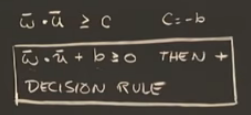 w̄ · ū ≥ c   c = -b
w̄ · ū + b ≥ 0 THEN +
DECISION RULE